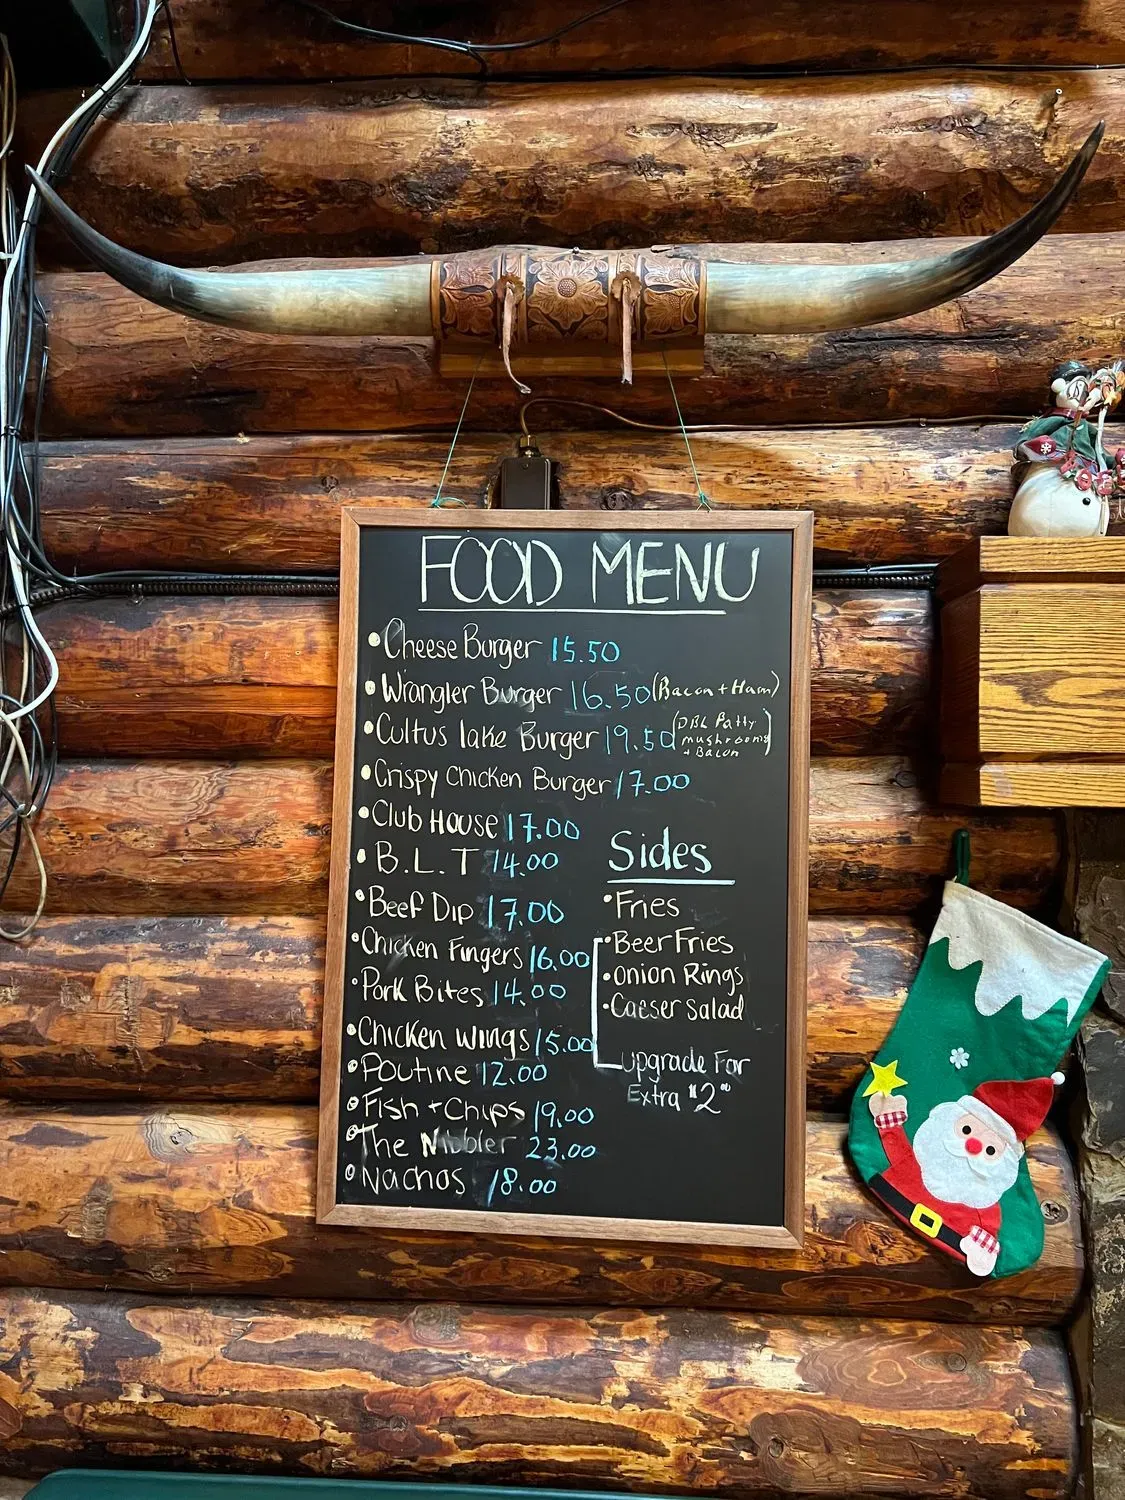 FOOD MENU
• Cheese Burger 15.50
• Wrangler Burger 16.50 (Bacon + Ham)
• Cultus lake Burger 19.50 (DBL Patty
mushrooms
+ Bacon)
• Crispy Chicken Burger 17.00
• Club House 17.00
• B.L.T 14.00
• Beef Dip 17.00
• Chicken Fingers 16.00
• Pork Bites 14.00
• Chicken wings 15.00
• Poutine 12.00
• Fish + Chips 19.00
• The Nibbler 23.00
• Nachos 18.00
Sides
• Fries
• Beer Fries
• Onion Rings
• Caeser Salad
upgrade For
Extra $2.00